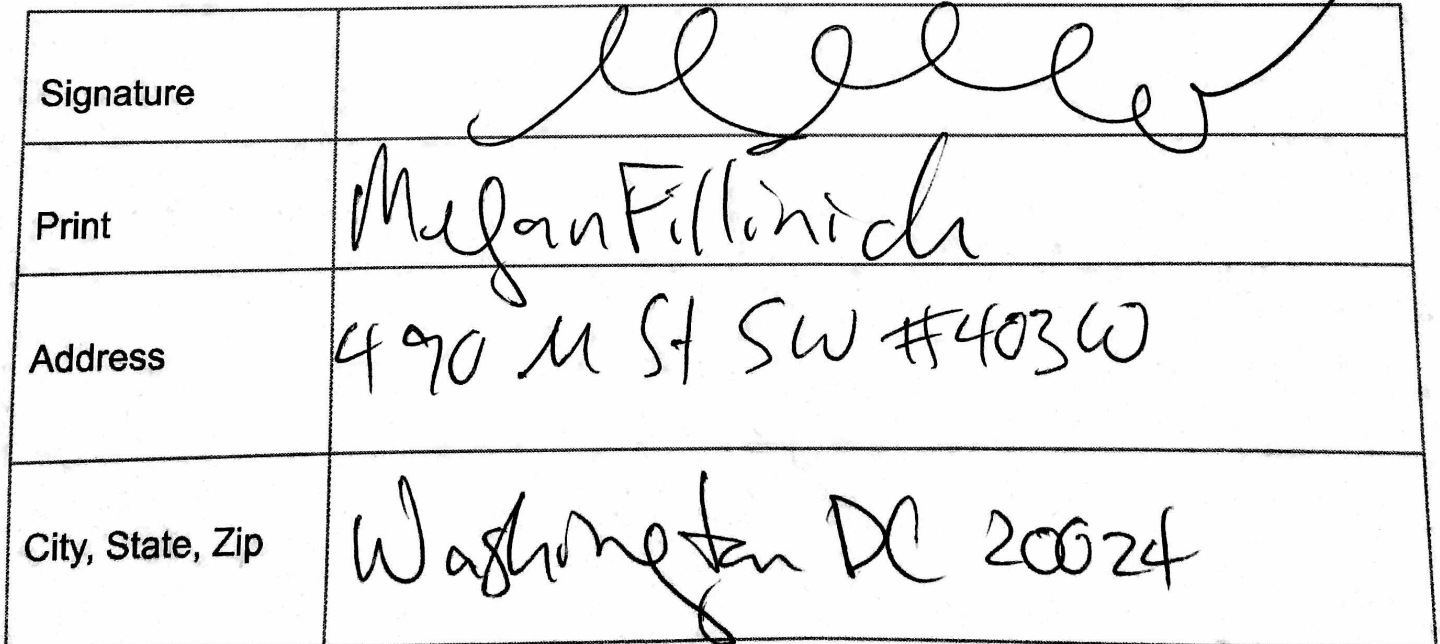 Signature
Print Megan Fillinich
Address 490 M St SW #403W
City, State, Zip Washington DC 20024